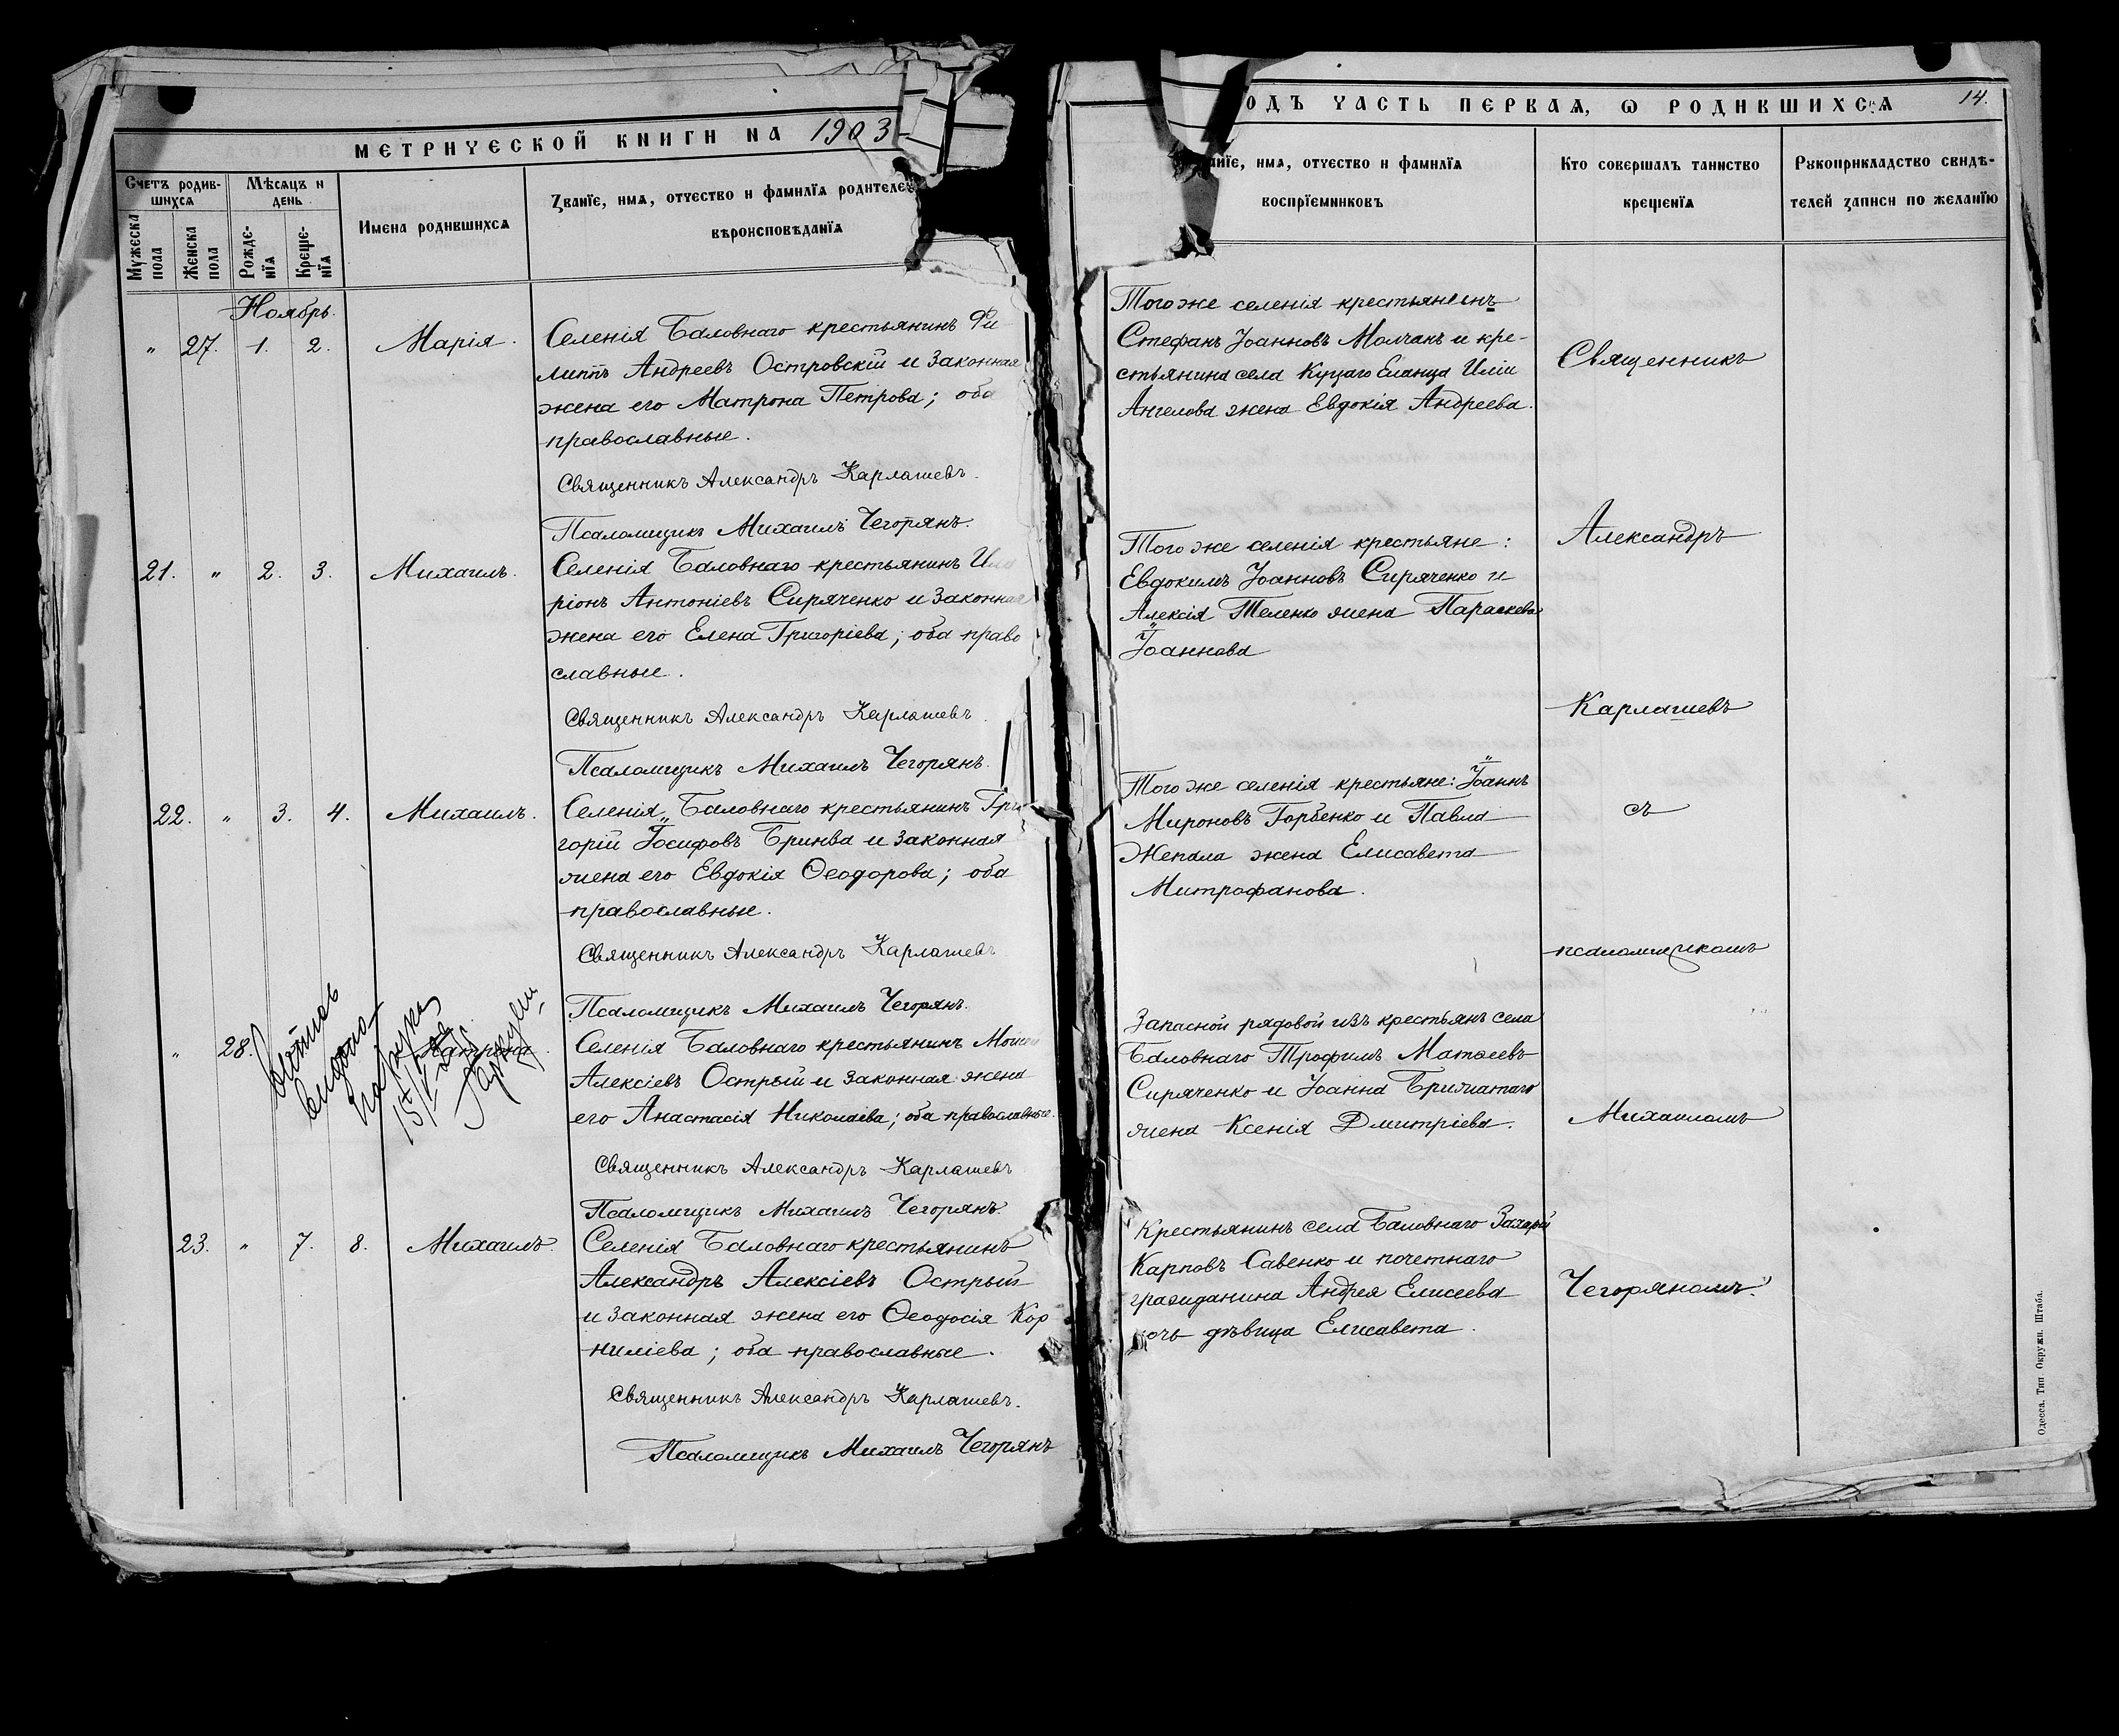 МЕТРИЧЕСКОЙ КНИГИ НА 1903
Счетъ родив-
шихся
Мѣсяцъ и
день
Мужеска
пола
Женска
пола
Рожде-
нїя
Креще-
нїя
Имена родившихся
Званїе, имя, отчество и фамилїя родителе
вѣроисповѣданїя
Ноябрь.
" 27. 1. 2. Марія.
Селенія Баловнаго крестьянинъ Фи-
липпъ Андреевъ Островскій и законная
жена его Матрона Петрова; оба
православные.
Священникъ Александръ Карлашевъ.
Псаломщикъ Михаилъ Чегорянъ.
21. " 2. 3. Михаилъ.
Селенія Баловнаго крестьянинъ Ила
ріонъ Антоніевъ Сиряченко и законная
жена его Елена Григоріева; оба право
славные.
Священникъ Александръ Карлашевъ.
Псаломщикъ Михаилъ Чегорянъ.
22. " 3. 4. Михаилъ.
Селенія Баловнаго крестьянинъ Гри
горій Іосифовъ Бринва и законная
жена его Евдокія Ѳеодорова; оба
православные.
Священникъ Александръ Карлашевъ
Псаломщикъ Михаилъ Чегорянъ.
" 28. Матрона.
Селенія Баловнаго крестьянинъ Моисей
Алексіевъ Острый и законная жена
его Анастасія Николаева; оба православные.
Священникъ Александръ Карлашевъ
Псаломщикъ Михаилъ Чегорянъ.
23. " 7. 8. Михаилъ.
Селенія Баловнаго крестьянинъ
Александръ Алексіевъ Острый
и законная жена его Ѳеодосія Кор
ниліева; оба православные.
Священникъ Александръ Карлашевъ.
Псаломщикъ Михаилъ Чегорянъ
ОДЪ ЧАСТЬ ПЕРВАЯ, Ѡ РОДИВШИХСЯ
14.
анїе, имя, отчество и фамилїя
воспрїемниковъ
Кто совершалъ таинство
крещенїя
Рукоприкладство свидѣ-
телей записи по желанїю
Того же селенія крестьянинъ
Стефанъ Іоанновъ Молчанъ и кре-
стьянина села Куцаго Еланца Иліи
Ангелова жена Евдокія Андреева.
Того же селенія крестьяне:
Евдокимъ Іоанновъ Сиряченко и
Алексія Теленко жена Параскева
Іоаннова
Того же селенія крестьяне: Іоаннъ
Мироновъ Горбенко и Павла
Жепала жена Елисавета
Митрофанова.
Запасной рядовой изъ крестьянъ села
Баловнаго Трофимъ Матѳеевъ
Сиряченко и Іоанна Брижатаго
жена Ксенія Дмитріева.
Крестьянинъ села Баловнаго Захарій
Карповъ Савенко и почетнаго
гражданина Андрея Елисеева
дочь дѣвица Елисавета.
Священникъ
Александръ
Карлашевъ
съ
псаломщикомъ
Михаиломъ
Чегоряномъ.
Одесса. Тип. Окружн. Штаба.